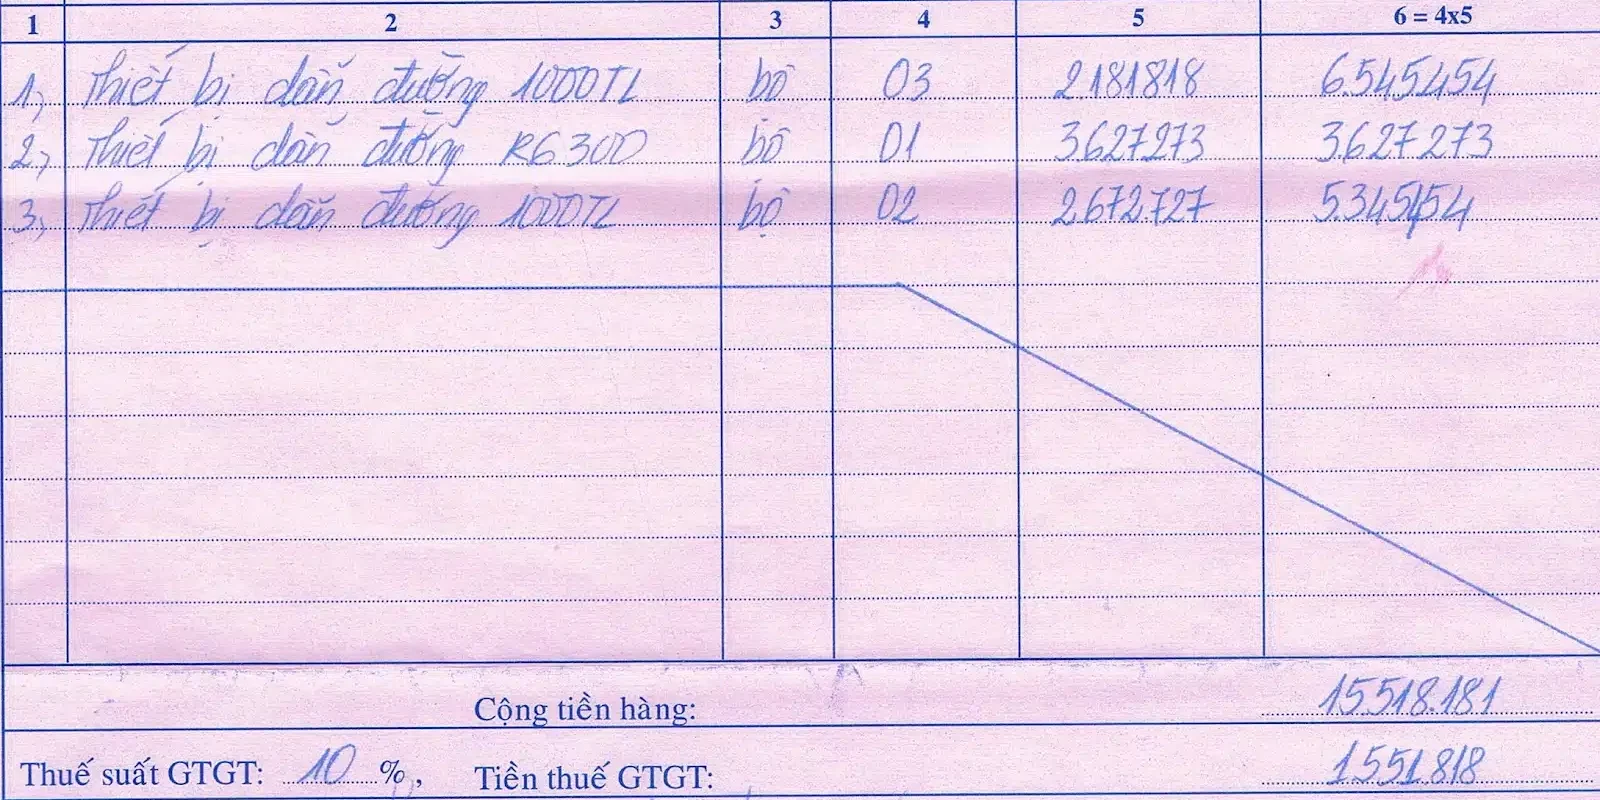 1 2 3 4 5 6 = 4x5
1, Thiết bị dẫn đường 1000TL bộ 03 2.181818 6.545454
2, Thiết bị dẫn đường RG300 bộ 01 3.627273 3.627273
3, Thiết bị dẫn đường 1000TL bộ 02 2.672.727 5.345454
Cộng tiền hàng: 15.518.181
Thuế suất GTGT: 10 %, Tiền thuế GTGT: 1.551.818